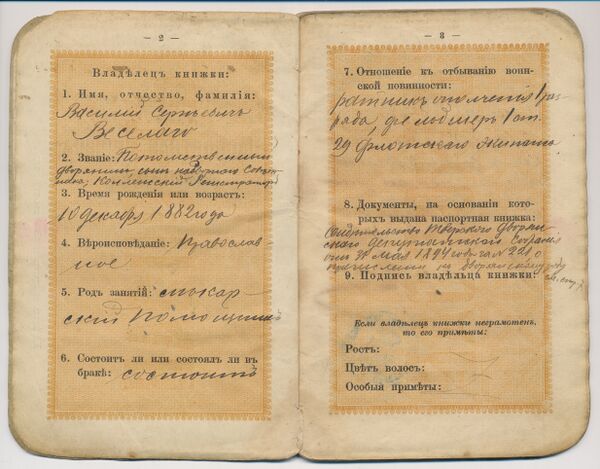 — 2 —
Владѣлецъ книжки:
1. Имя, отчество, фамилія:
Василій Сергѣевичъ
Веселаго
2. Званіе: Потомственный
дворянинъ, сынъ надворнаго Совѣт
ника; Коллежскій Регистраторъ
3. Время рожденія или возрастъ:
10 декабря 1882 года
4. Вѣроисповѣданіе: Православ
ное
5. Родъ занятій:
скій помощникъ
6. Состоитъ ли или состоялъ ли въ
бракѣ: состоитъ
— 3 —
7. Отношеніе къ отбыванію воин-
ской повинности:
ратникъ ополченія 1 раз-
ряда, фельдшеръ 1 ст.
29 флотскаго Экипажа
8. Документы, на основаніи кото-
рыхъ выдана паспортная книжка:
Свидѣтельство Тверского Дворян
скаго Депутатскаго Собранія
отъ мая 1894 года за № о
причисленіи къ дворянскому роду
9. Подпись владѣльца книжки: см. стр.
Если владѣлецъ книжки неграмотенъ,
то его примѣты:
Ростъ:
Цвѣтъ волосъ:
Особыя примѣты: